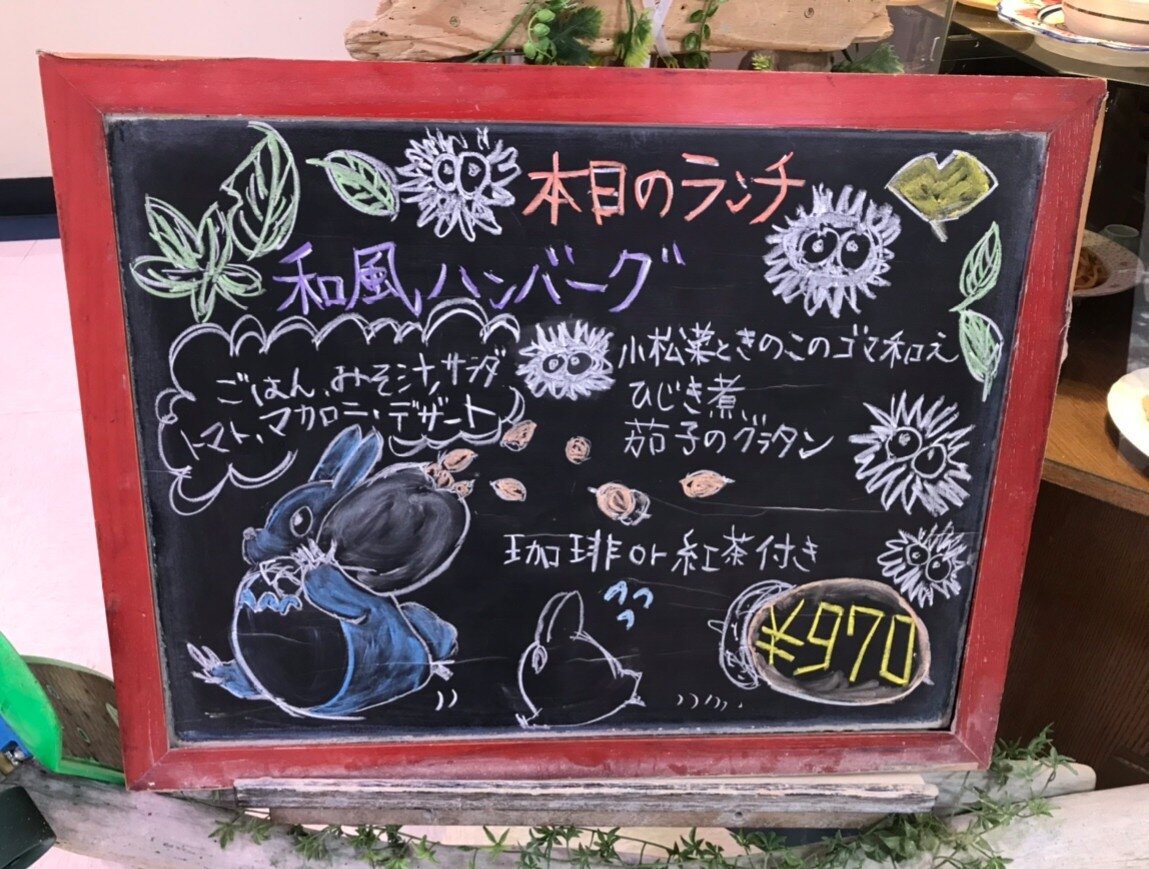 本日のランチ
和風ハンバーグ
ごはん、みそ汁、サラダ
トマト、マカロニ、デザート
小松菜ときのこのゴマ和え
ひじき煮
茄子のグラタン
珈琲or紅茶付き
¥970